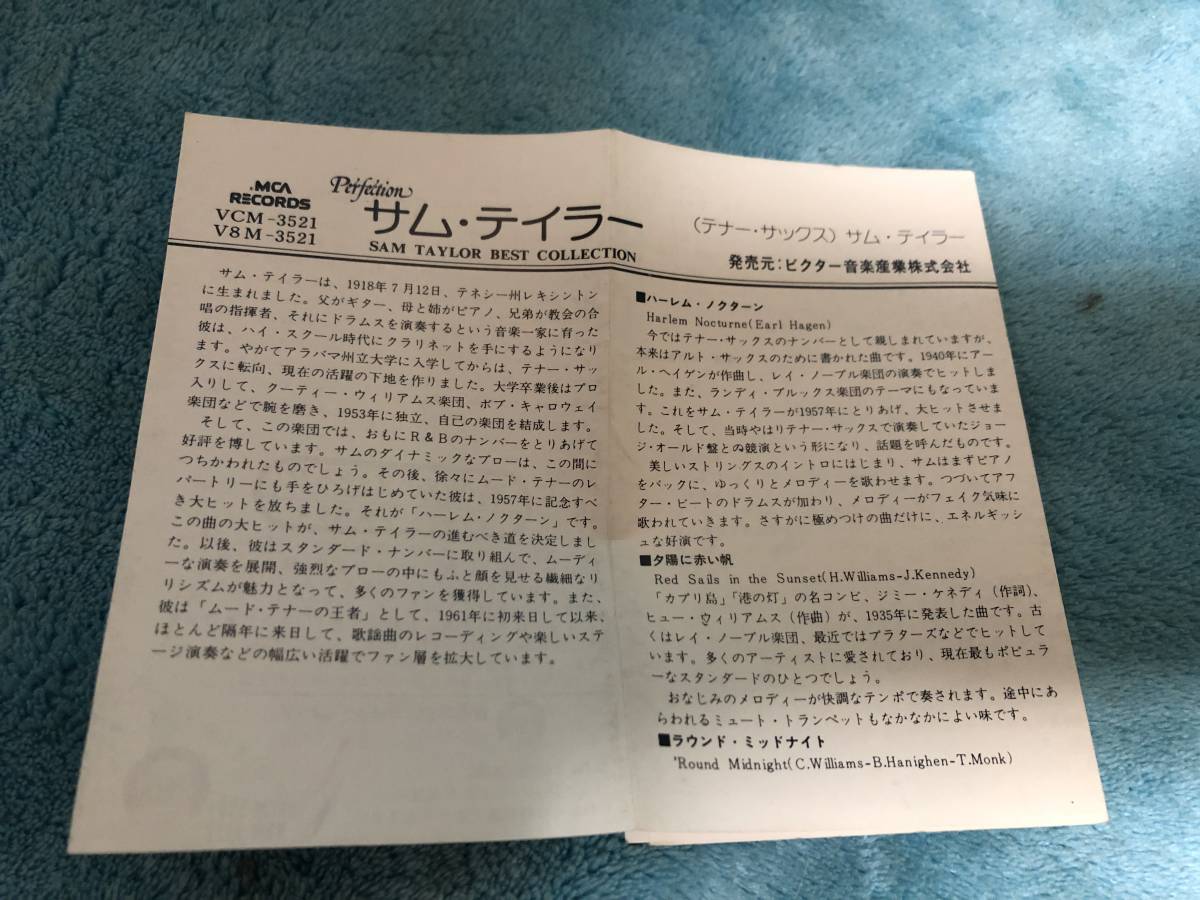 MCA
RECORDS
VCM-3521
V8M-3521
Perfection
サム・テイラー
SAM TAYLOR BEST COLLECTION
(テナー・サックス) サム・テイラー
発売元:ビクター音楽産業株式会社
サム・テイラーは、1918年7月12日、テネシー州レキシントン
に生まれました。父がギター、母と姉がピアノ、兄弟が教会の合
唱の指揮者、それにドラムスを演奏するという音楽一家に育った
彼は、ハイ・スクール時代にクラリネットを手にするようになり
ます。やがてアラバマ州立大学に入学してからは、テナー・サッ
クスに転向、現在の活躍の下地を作りました。大学卒業後はプロ
入りして、クーティー・ウィリアムス楽団、ボブ・キャロウェイ
楽団などで腕を磨き、1953年に独立、自己の楽団を結成します。
そして、この楽団では、おもにR&Bのナンバーをとりあげて
好評を博しています。サムのダイナミックなブローは、この間に
つちかわれたものでしょう。その後、徐々にムード・テナーのレ
パートリーにも手をひろげはじめていた彼は、1957年に記念すべ
き大ヒットを放ちました。それが「ハーレム・ノクターン」です。
この曲の大ヒットが、サム・テイラーの進むべき道を決定しまし
た。以後、彼はスタンダード・ナンバーに取り組んで、ムーディ
ーな演奏を展開、強烈なブローの中にもふと顔を見せる繊細なリ
リシズムが魅力となって、多くのファンを獲得しています。また、
彼は「ムード・テナーの王者」として、1961年に初来日して以来、
ほとんど隔年に来日して、歌謡曲のレコーディングや楽しいステ
ージ演奏などの幅広い活躍でファン層を拡大しています。
■ハーレム・ノクターン
Harlem Nocturne(Earl Hagen)
今ではテナー・サックスのナンバーとして親しまれていますが、
本来はアルト・サックスのために書かれた曲です。1940年にアー
ル・ヘイゲンが作曲し、レイ・ノーブル楽団の演奏でヒットしま
した。また、ランディ・ブルックス楽団のテーマにもなっていま
す。これをサム・テイラーが1957年にとりあげ、大ヒットさせま
した。そして、当時やはりテナー・サックスで演奏していたジョー
ジ・オールド盤との競演という形になり、話題を呼んだものです。
美しいストリングスのイントロにはじまり、サムはまずピアノ
をバックに、ゆっくりとメロディーを歌わせます。つづいてアフ
ター・ビートのドラムスが加わり、メロディーがフェイク気味に
歌われていきます。さすがに極めつけの曲だけに、エネルギッシ
ュな好演です。
■夕陽に赤い帆
Red Sails in the Sunset(H.Williams-J.Kennedy)
「カプリ島」「港の灯」の名コンビ、ジミー・ケネディ(作詞)、
ヒュー・ウィリアムス(作曲)が、1935年に発表した曲です。古
くはレイ・ノーブル楽団、最近ではプラターズなどでヒットして
います。多くのアーティストに愛されており、現在最もポピュラ
ーなスタンダードのひとつでしょう。
おなじみのメロディーが快調なテンポで奏されます。途中にあ
らわれるミュート・トランペットもなかなかによい味です。
■ラウンド・ミッドナイト
'Round Midnight(C.Williams-B.Hanighen-T.Monk)